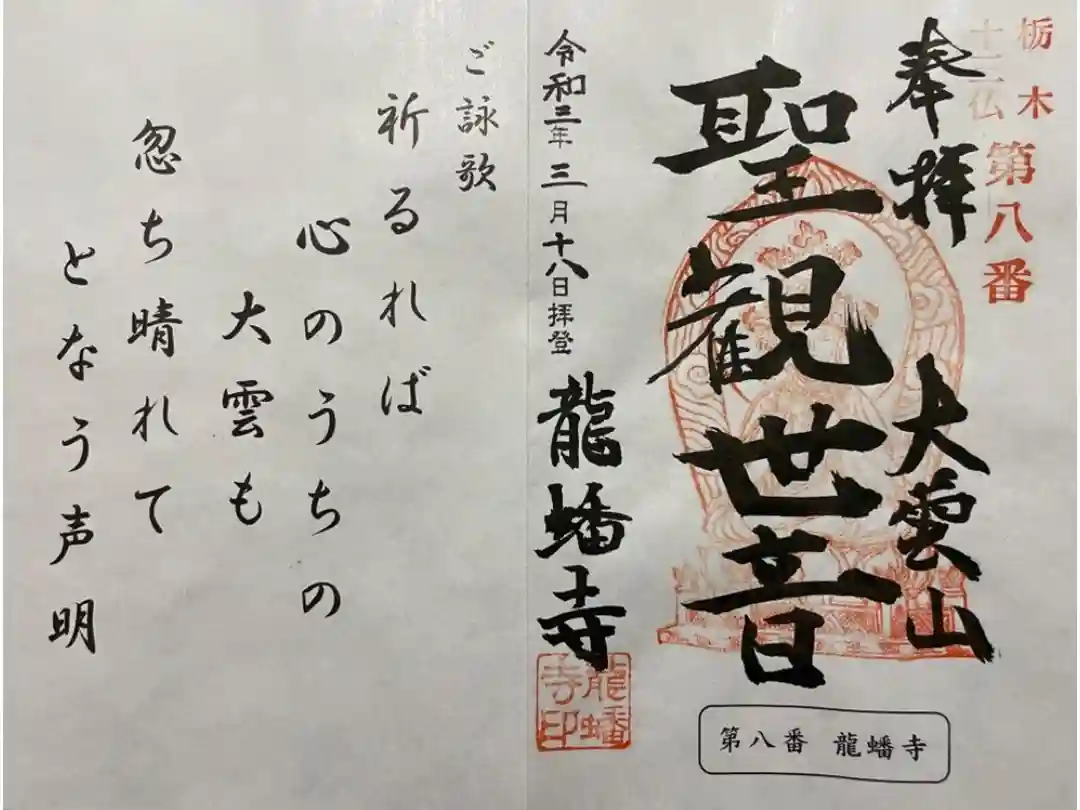 栃木
十三仏
第八番
奉拝
大雲山
聖観世音
令和三年三月十八日拝登
龍蟠寺
龍蟠
寺印
第八番 龍蟠寺
ご詠歌
祈るれば
心のうちの
大雲も
忽ち晴れて
となう声明